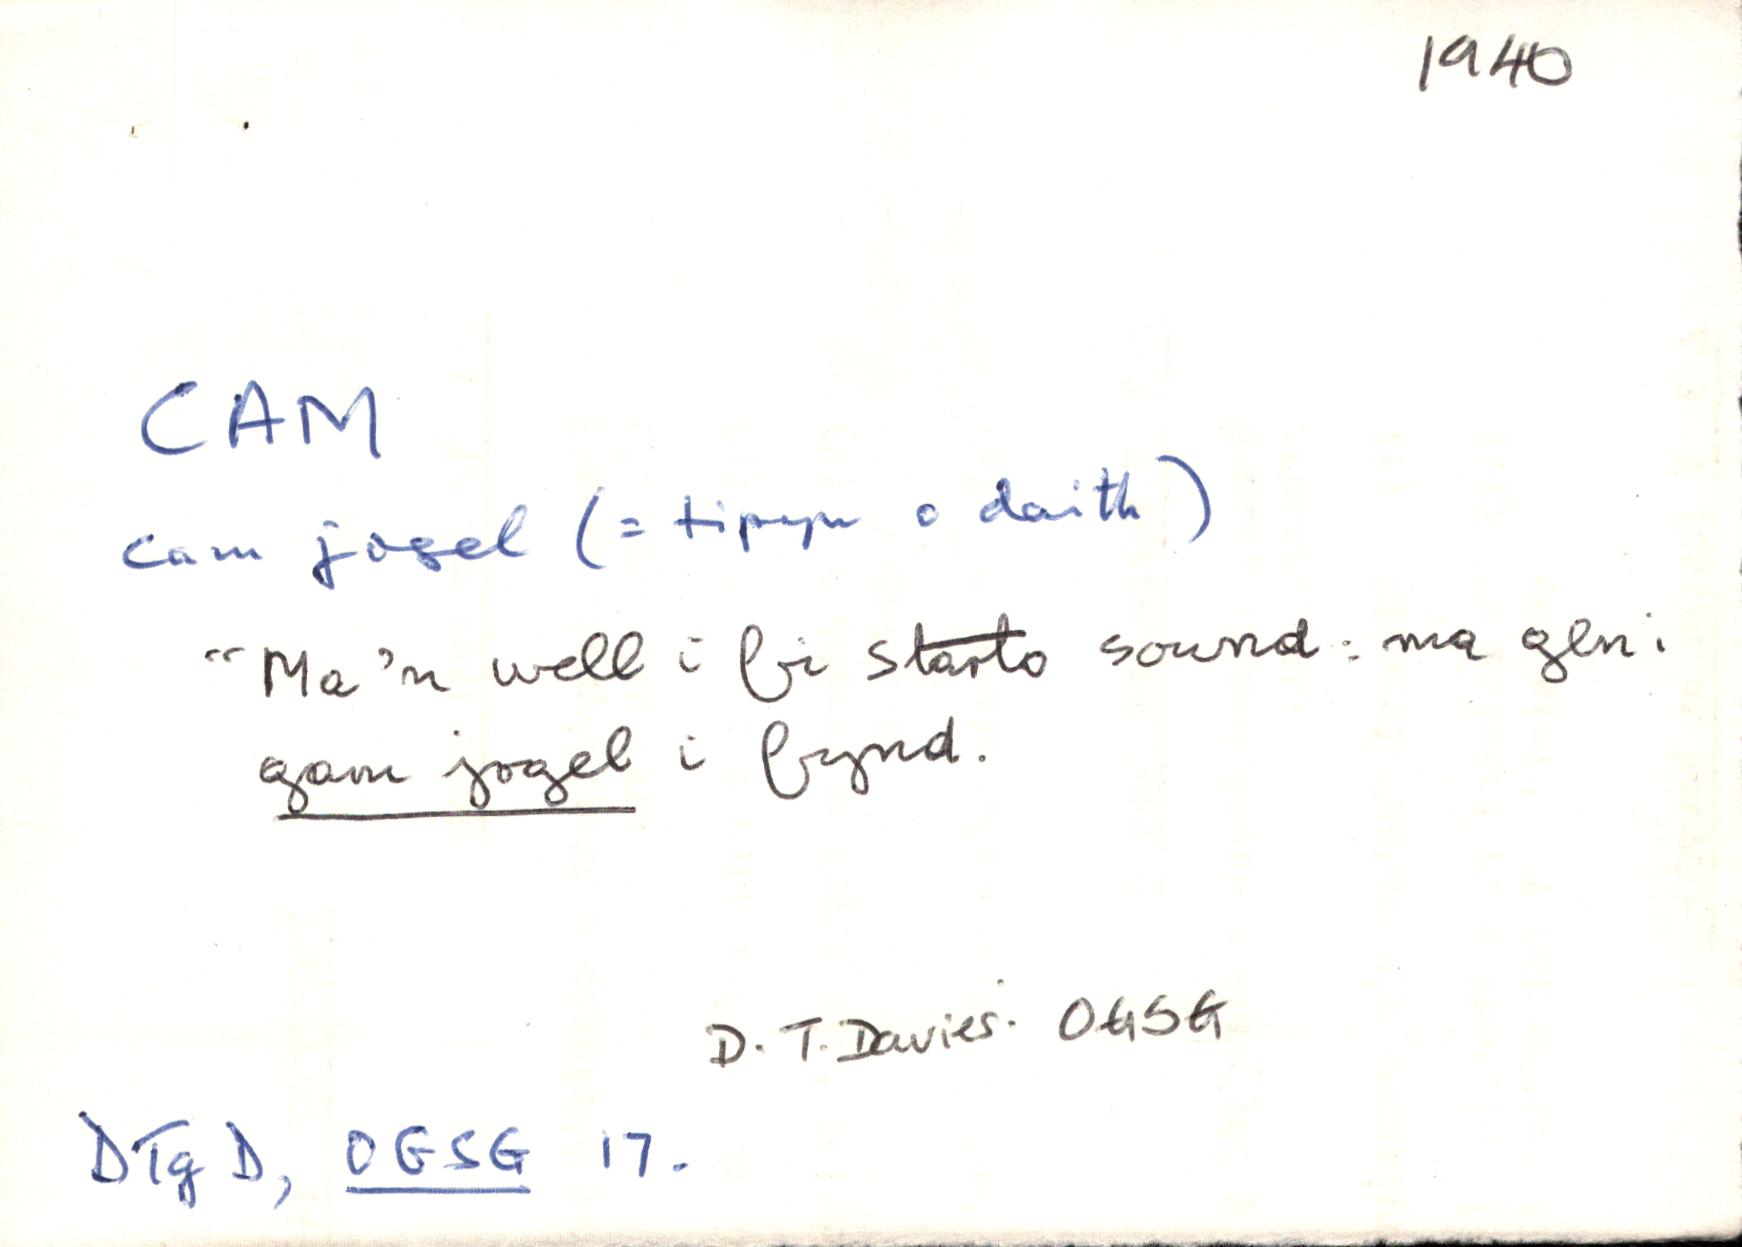 1940
CAM
cam jogel (= tipyn o daith)
"Ma'n well i fi starto sownd: ma gen i
gam jogel i fynd.
D. T. Davies. OGSG
DTgD, OGSG 17.